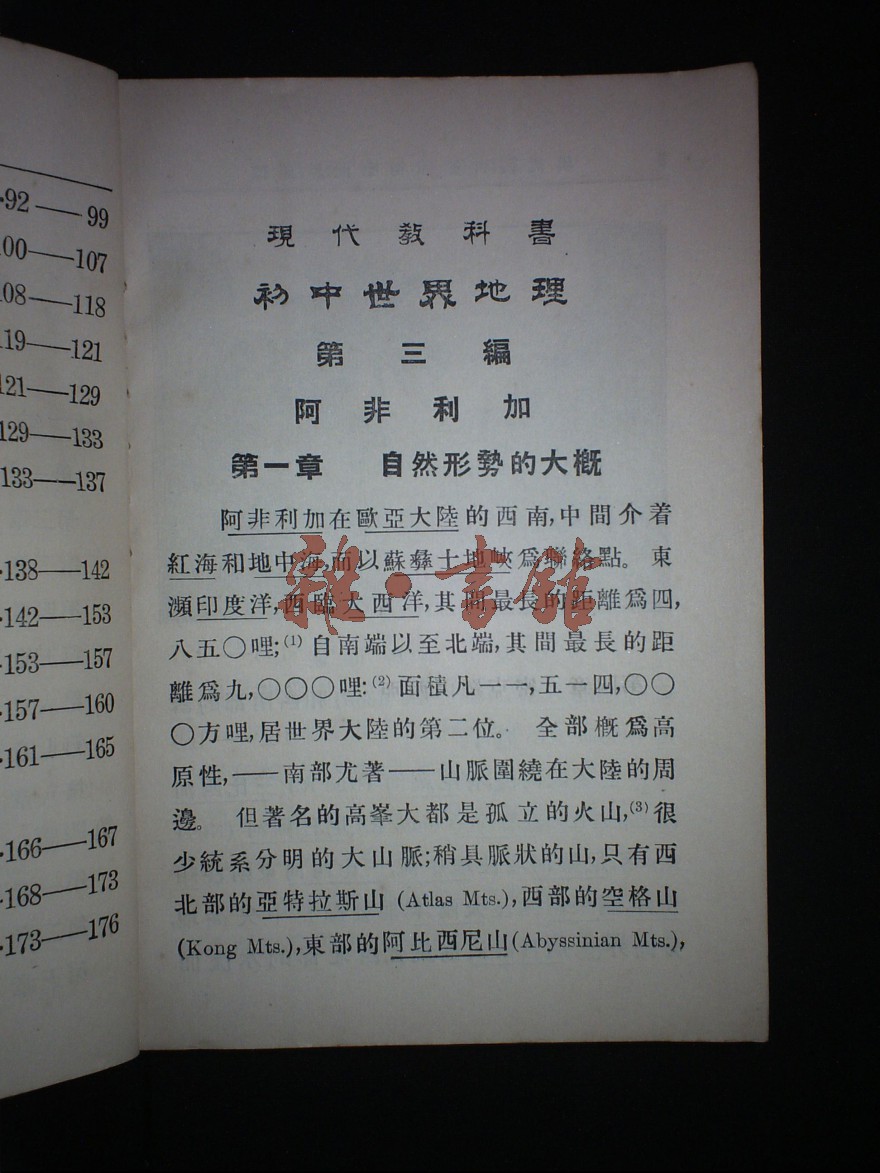 92——99
100——107
108——118
119——121
121——129
129——133
133——137
138——142
142——153
153——157
157——160
161——165
166——167
168——173
173——176
現代教科書
初中世界地理
第三編
阿非利加
第一章 自然形勢的大概
阿非利加在歐亞大陸的西南,中間介着
紅海和地中海,而以蘇彝士地峽爲聯絡點。東
瀕印度洋,西臨大西洋,其間最長的距離爲四,
八五〇哩;⁽¹⁾自南端以至北端,其間最長的距
離爲九,〇〇〇哩:⁽²⁾面積凡一一,五一四,〇〇
〇方哩,居世界大陸的第二位。 全部概爲高
原性,——南部尤著——山脈圍繞在大陸的周
邊。 但著名的高峯大都是孤立的火山,⁽³⁾很
少統系分明的大山脈;稍具脈狀的山,只有西
北部的亞特拉斯山 (Atlas Mts.),西部的空格山
(Kong Mts.),東部的阿比西尼山(Abyssinian Mts.),
雜·書館